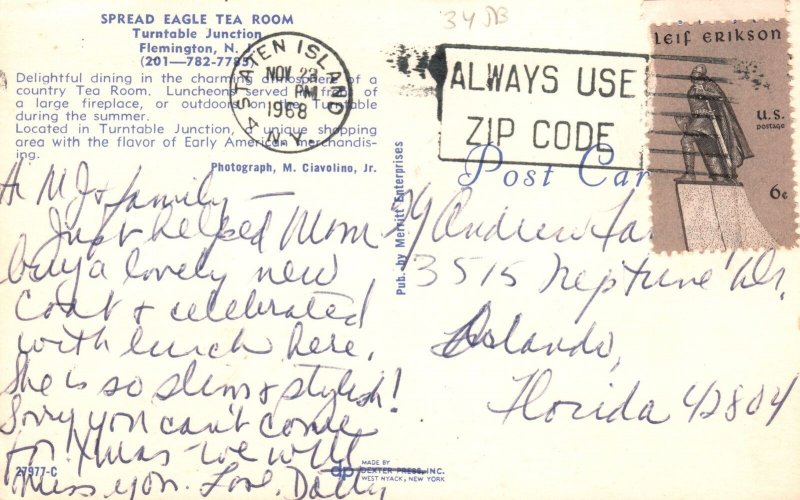 SPREAD EAGLE TEA ROOM
Turntable Junction
Flemington, N. J.
(201—782-7785)
Delightful dining in the charming atmosphere of a
country Tea Room. Luncheons served in front of
a large fireplace, or outdoors on the Turntable
during the summer.
Located in Turntable Junction, a unique shopping
area with the flavor of Early American merchandis-
ing.
Photograph, M. Ciavolino, Jr.
Hi M J & family —
Just helped Mom
buy a lovely new
coat & celebrated
with lunch here.
She is so slim & stylish!
Sorry you can't come
for Xmas - we will
miss you. Love, Dolly
27977-C
Pub. by Merritt Enterprises
STATEN ISLAND
NOV 23
PM
1968
N.Y.
34
ALWAYS USE
ZIP CODE
Post Car
LEIF ERIKSON
U.S.
postage
6¢
Andrew
3515 Neptune Dr,
Orlando,
Florida 42804
dp
MADE BY
DEXTER PRESS, INC.
WEST NYACK, NEW YORK